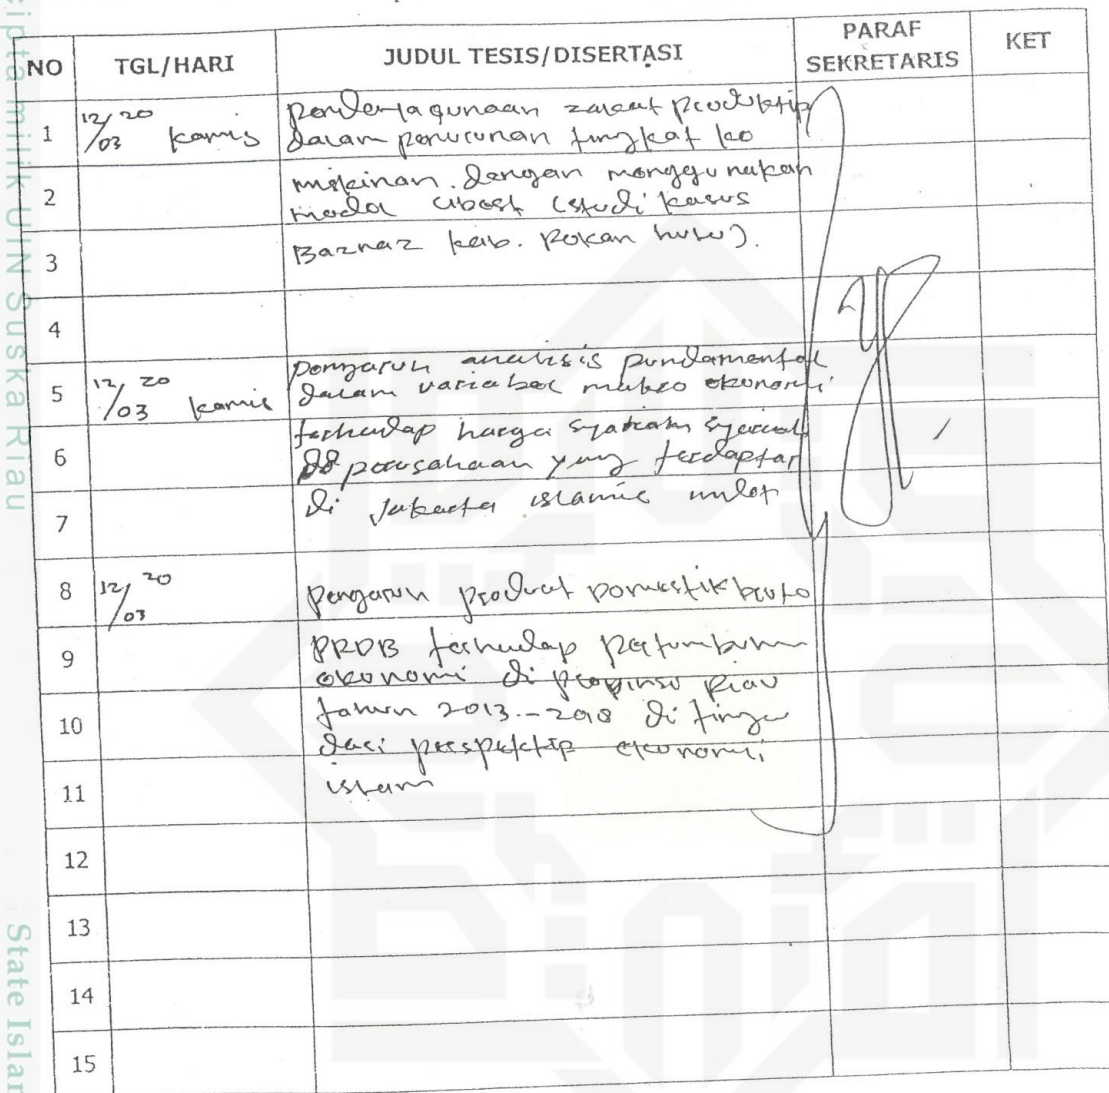 cipta milik UIN Suska Riau
State Islam
NO TGL/HARI JUDUL TESIS/DISERTASI PARAF SEKRETARIS KET
1 12/03 20 kamis pendayagunaan zakat produktip
dalam penurunan tingkat ke
2 miskinan. dengan menggunakan
model cibest (studi kasus
3 Baznaz kab. Rokan hulu).
4
5 12/03 20 kamis pengaruh analisis pundamental
dalam variabel makro ekonomi
6 terhadap harga syariah
perusahaan yang terdaptar
7 di Jakarta islamic
8 12/03 20 pengaruh product Domestik bruto
9 PRDB terhadap pertumbuhan
ekonomi di propinsi Riau
10 tahun 2013--2018 di tinjau
dari perspektip ekonomi
11 islam
12
13
14
15